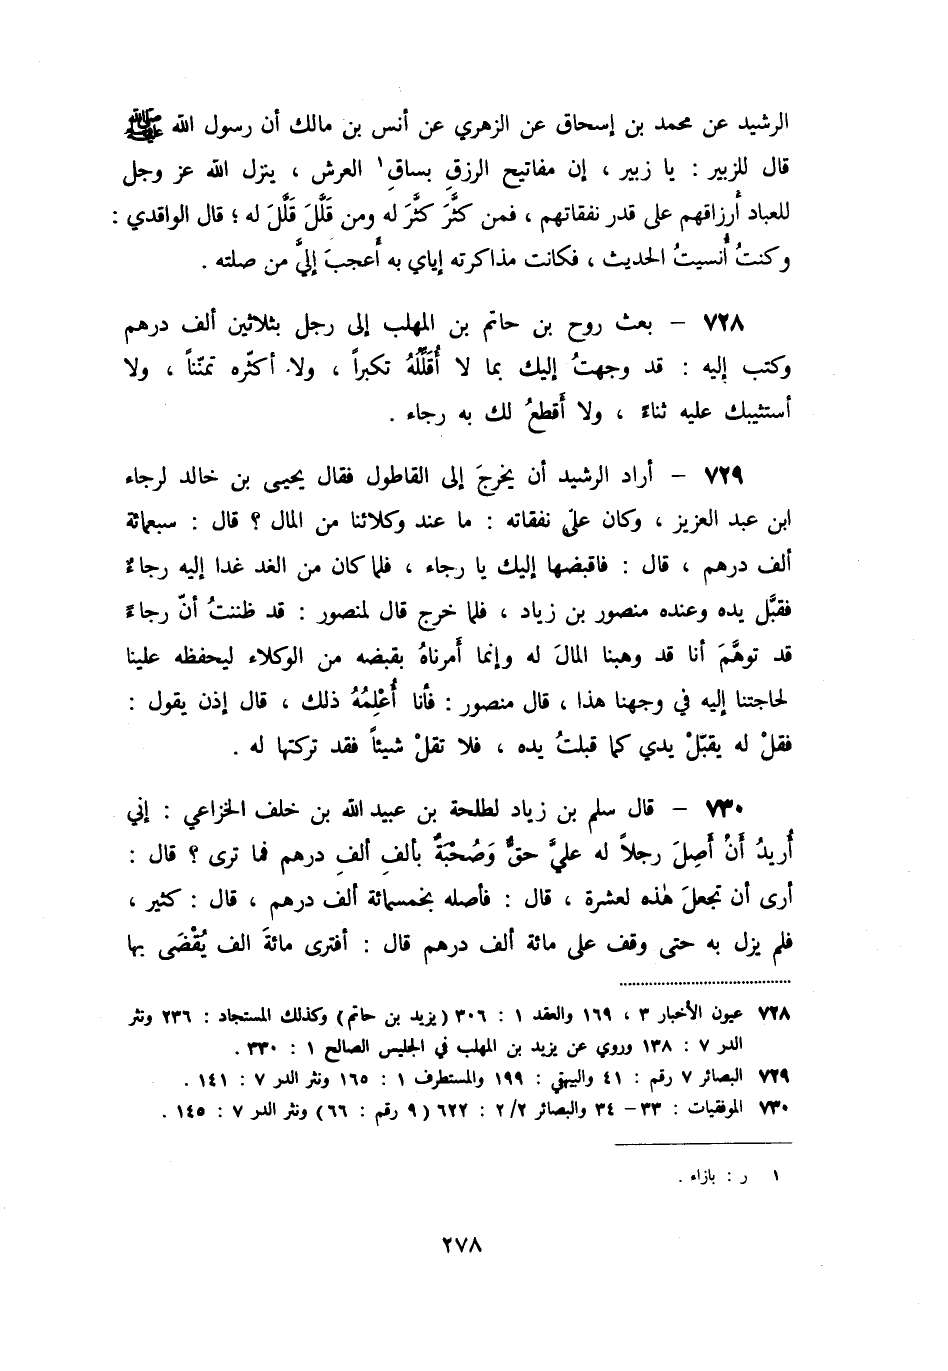 الرشيد عن محمد بن إسحاق عن الزهري عن أنس بن مالك أن رسول الله ﷺ
قال للزبير : يا زبير ، إن مفاتيح الرزقِ بساقِ¹ العرش ، ينزل الله عز وجل
للعباد أرزاقهم على قدر نفقاتهم ، فمن كثَّرَ كثَّرَ له ومن قَلَّلَ قَلَّلَ له ؛ قال الواقدي :
وكنتُ أُنسيتُ الحديث ، فكانت مذاكرته إياي به أَعجبَ إليَّ من صلته .
٧٢٨ – بعث روح بن حاتم بن المهلب إلى رجل بثلاثين ألف درهم
وكتب إليه : قد وجهتُ إليك بما لا أُقَلِّلُهُ تكبراً ، ولا أكثّره تمنّناً ، ولا
أستثيبك عليه ثناءً ، ولا أَقطعُ لك به رجاء .
٧٢٩ – أراد الرشيد أن يخرجَ إلى القاطول فقال يحيى بن خالد لرجاء
ابن عبد العزيز ، وكان على نفقاته : ما عند وكلائنا من المال ؟ قال : سبعمائة
ألف درهم ، قال : فاقبضها إليك يا رجاء ، فلما كان من الغد غدا إليه رجاءٌ
فقبَّل يده وعنده منصور بن زياد ، فلما خرج قال لمنصور : قد ظننتُ أنّ رجاءً
قد توهَّمَ أنا قد وهبنا المالَ له وإنما أَمرناهُ بقبضه من الوكلاء ليحفظه علينا
لحاجتنا إليه في وجهنا هذا ، قال منصور : فأنا أُعْلِمُهُ ذلك ، قال إذن يقول :
فقلْ له يقبّلْ يدي كما قبلتُ يده ، فلا تقلْ شيئاً فقد تركتها له .
٧٣٠ – قال سلم بن زياد لطلحة بن عبيد الله بن خلف الخزاعي : إني
أُريدُ أَنْ أَصِلَ رجلاً له عليَّ حقٌّ وَصُحْبَةٌ بألفِ ألفِ درهم فما ترى ؟ قال :
أرى أن تجعلَ هذه لعشرة ، قال : فأصله بخمسمائة ألف درهم ، قال : كثير ،
فلم يزل به حتى وقف على مائة ألف درهم قال : أفترى مائةَ الف يُقْضَى بها
٧٢٨ عيون الأخبار ٣ ، ١٦٩ والعقد ١ : ٣٠٦ (يزيد بن حاتم) وكذلك المستجاد : ٢٣٦ ونثر
الدر ٧ : ١٣٨ وروي عن يزيد بن المهلب في الجليس الصالح ١ : ٣٣٠ .
٧٢٩ البصائر ٧ رقم : ٤١ والبيهقي : ١٩٩ والمستطرف ١ : ١٦٥ ونثر الدر ٧ : ١٤١ .
٧٣٠ الموفقيات : ٣٣ – ٣٤ والبصائر ٢/٢ : ٦٢٢ (٩ رقم : ٦٦) ونثر الدر ٧ : ١٤٥ .
١ ر : بازاء .
٢٧٨